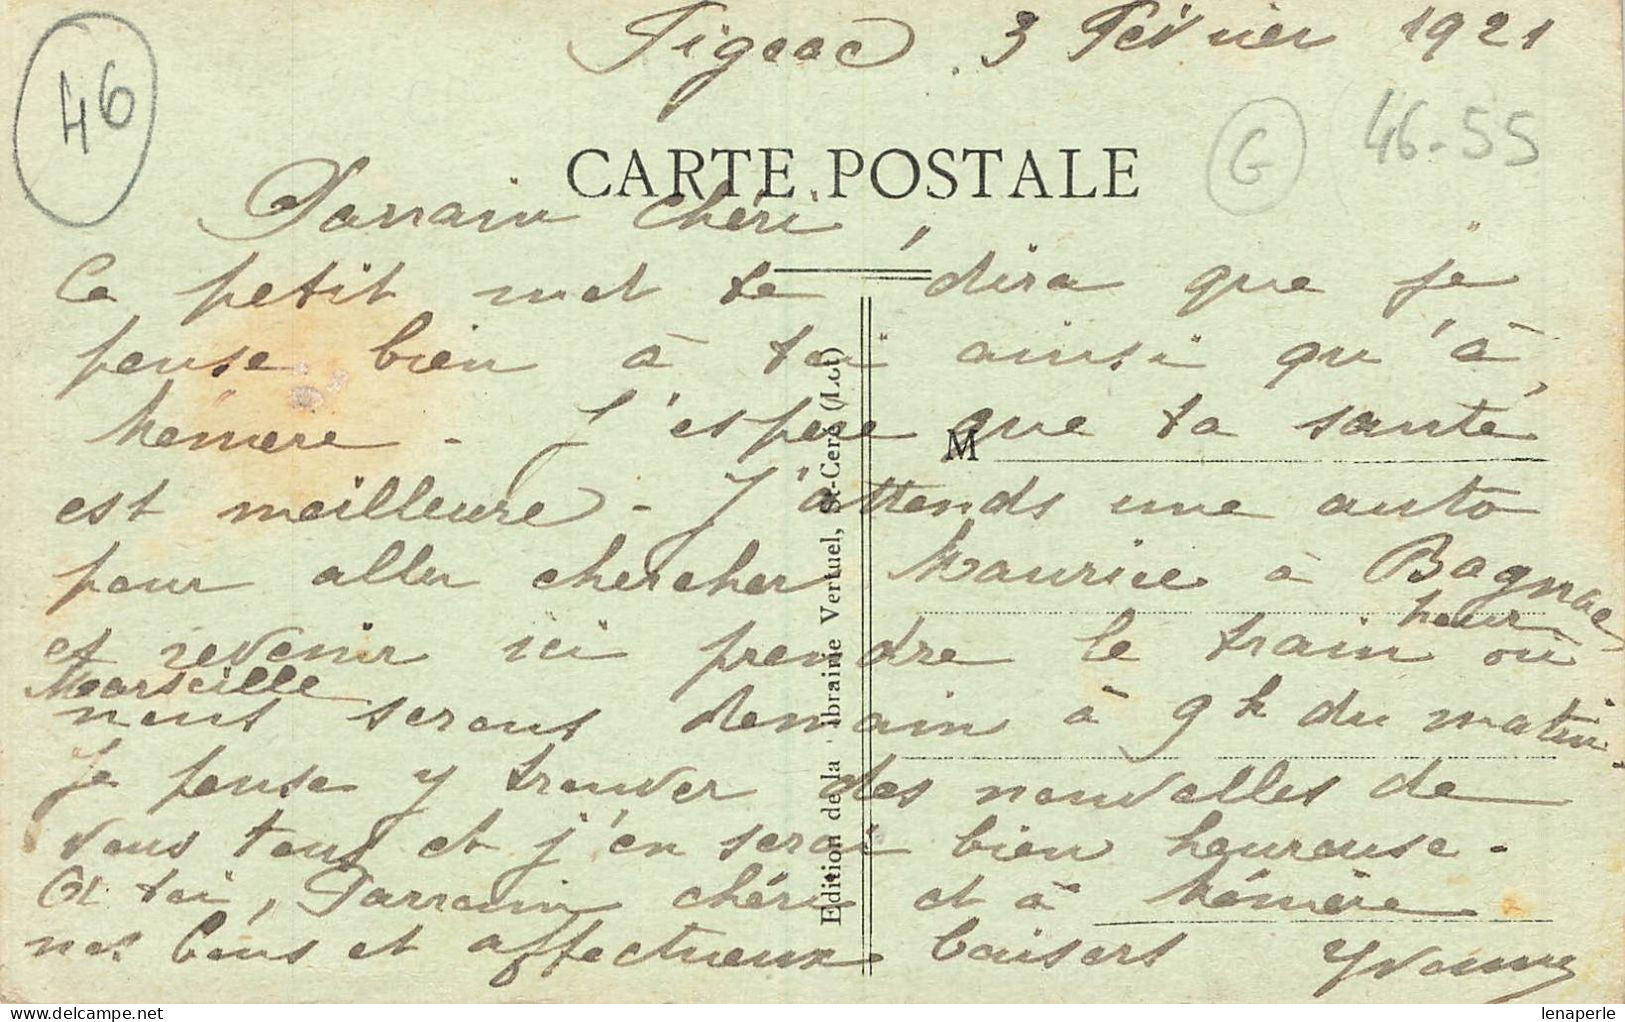 Figeac. 3 Février 1921
46
CARTE POSTALE
G
46-55
Parrain chéri,
Ce petit mot te dira que je
pense bien à toi ainsi qu'à
Mémère - J'espère que ta santé
M
est meilleure - J'attends une auto
pour aller chercher Maurice à Bagnac
et revenir ici prendre le train pour
Marseille où
nous serons demain à 9h du matin.
Je pense y trouver des nouvelles de
vous tous et j'en serai bien heureuse.
A toi, Parrain chéri et à Mémère
nos bons et affectueux baisers Yvonne
Edition de la librairie Vertuel, St-Céré (Lot)
lenaperle